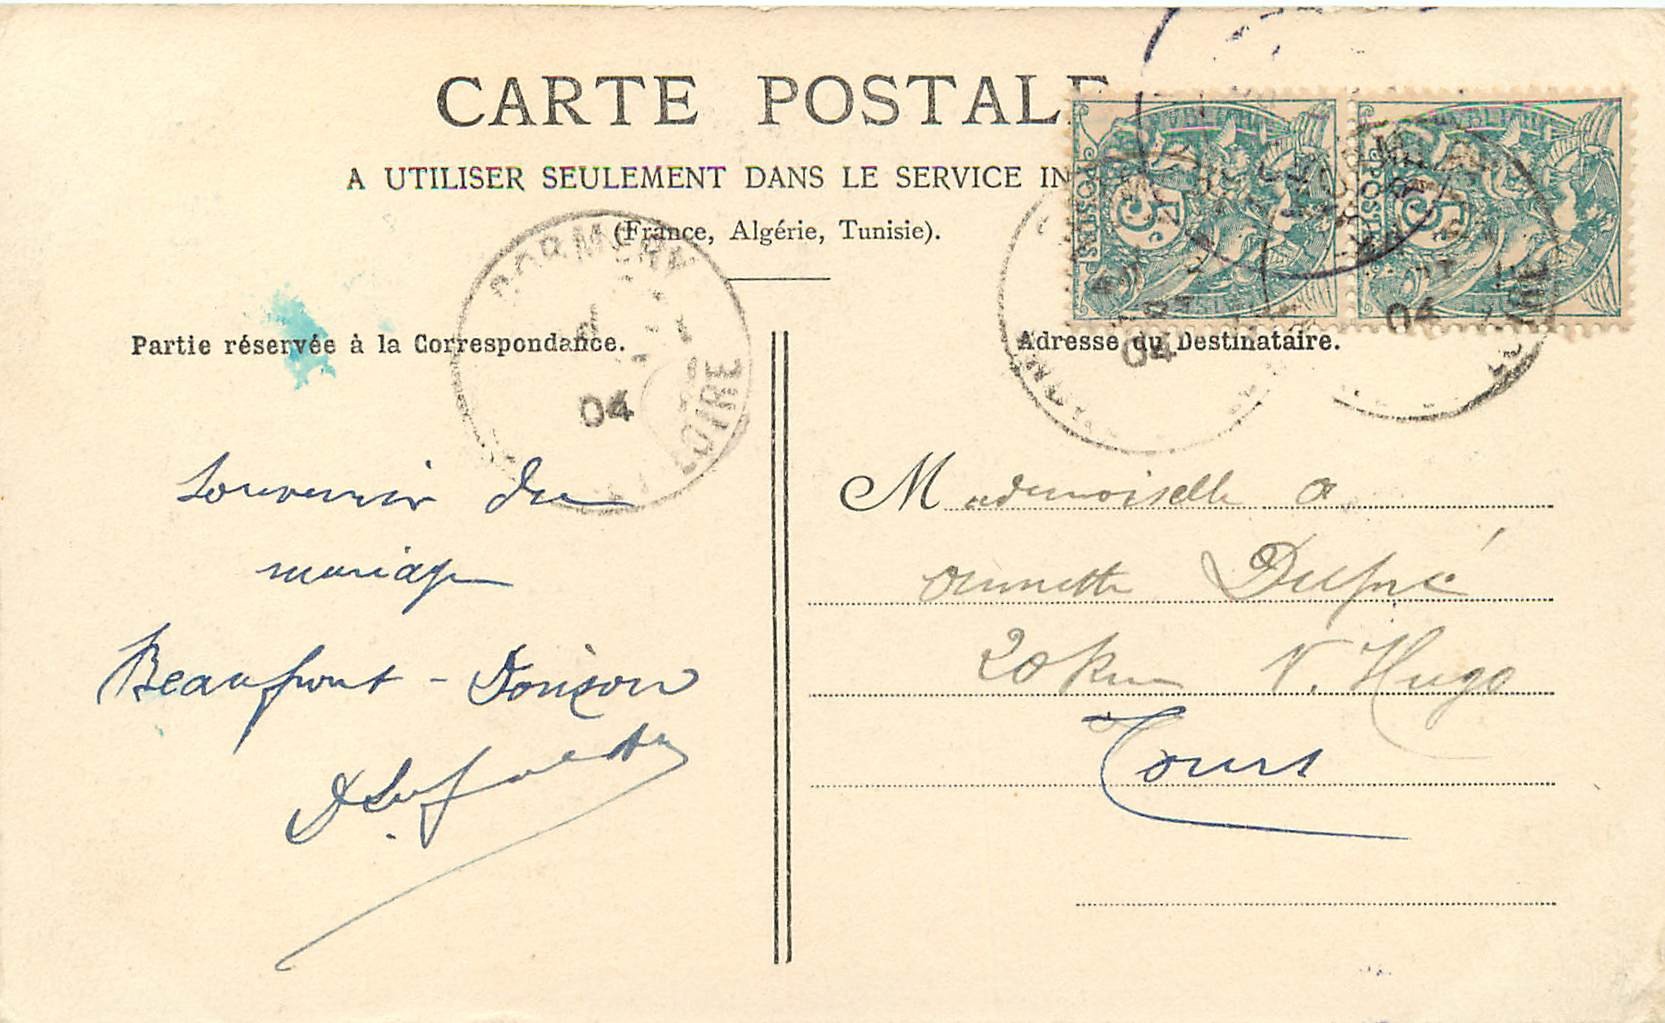 CARTE POSTALE
A UTILISER SEULEMENT DANS LE SERVICE IN
(France, Algérie, Tunisie).
Partie réservée à la Correspondance.
Adresse du Destinataire.
DORMERY
04
LOIRE
POSTES
5
POSTES
5
04
04
LOIRE
Souvenir du
mariage
Beaufront - Doison
Mademoiselle
Dupré
20 Rue V. Hugo
Tours